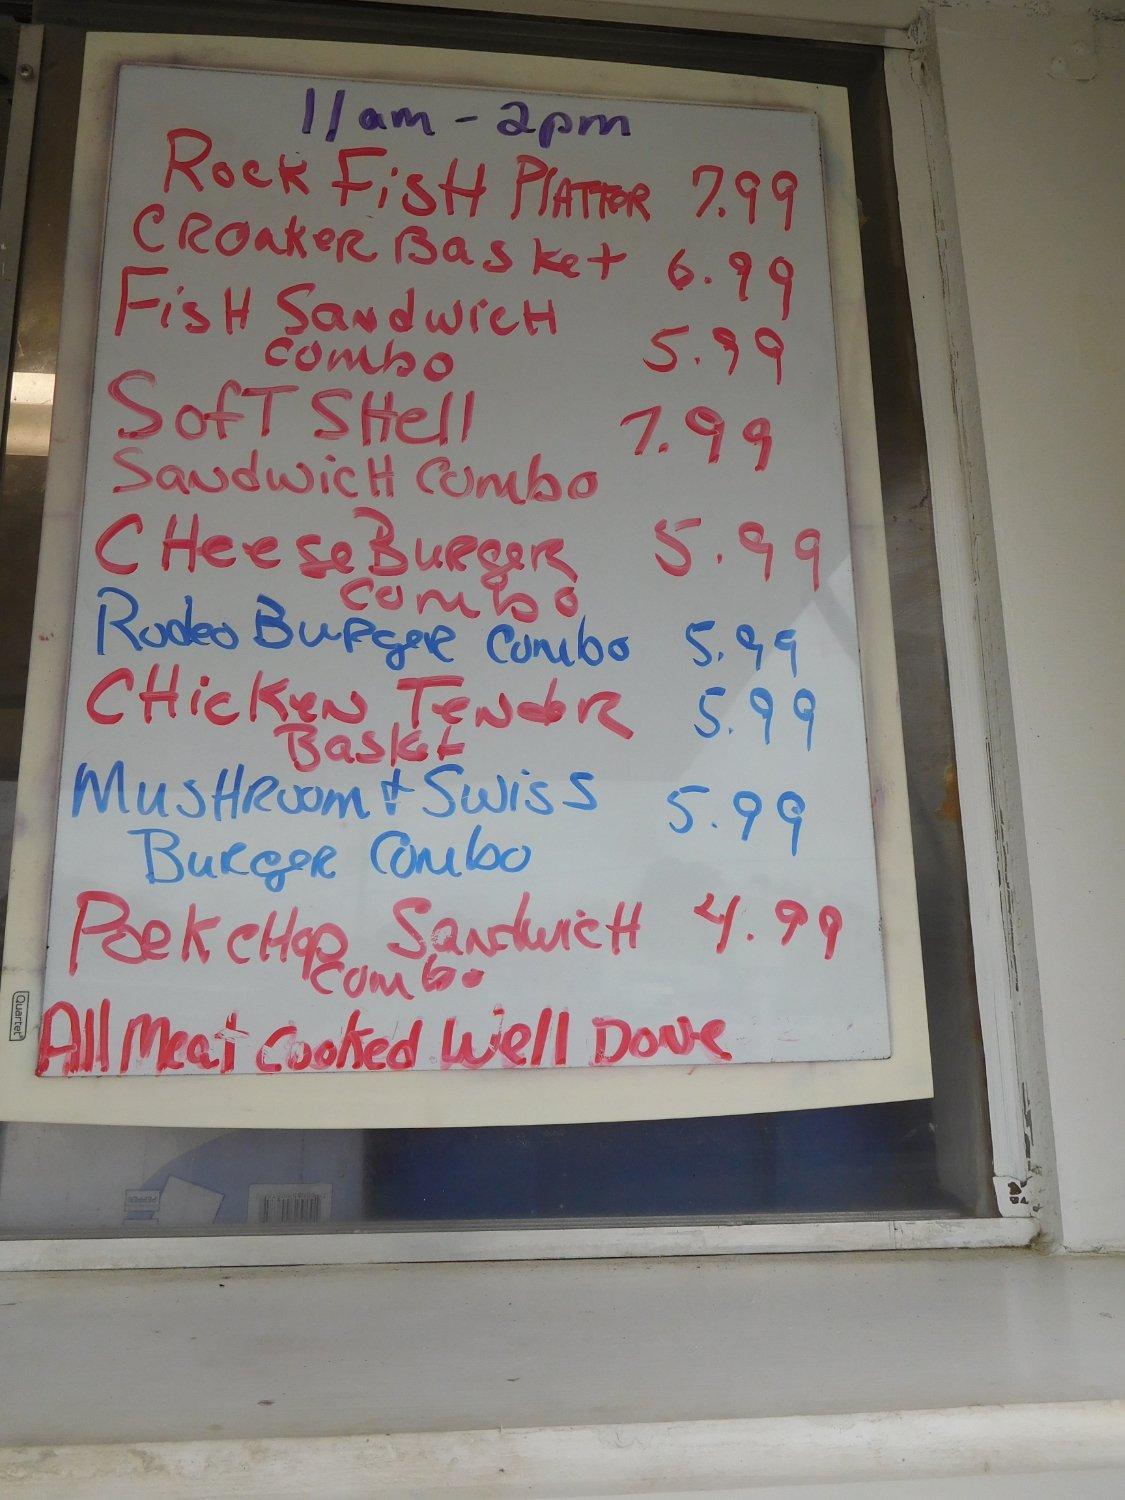 11am - 2pm
Rock Fish Platter 7.99
Croaker Basket 6.99
Fish Sandwich 5.99
combo
Soft Shell 7.99
Sandwich Combo
CHeese Burger 5.99
combo
Rodeo Burger Combo 5.99
CHicken Tender 5.99
Basket
MusHRoom & Swiss 5.99
Burger Combo
Porkchop SandwicH 4.99
combo
All Meat Cooked Well Done
Quartet